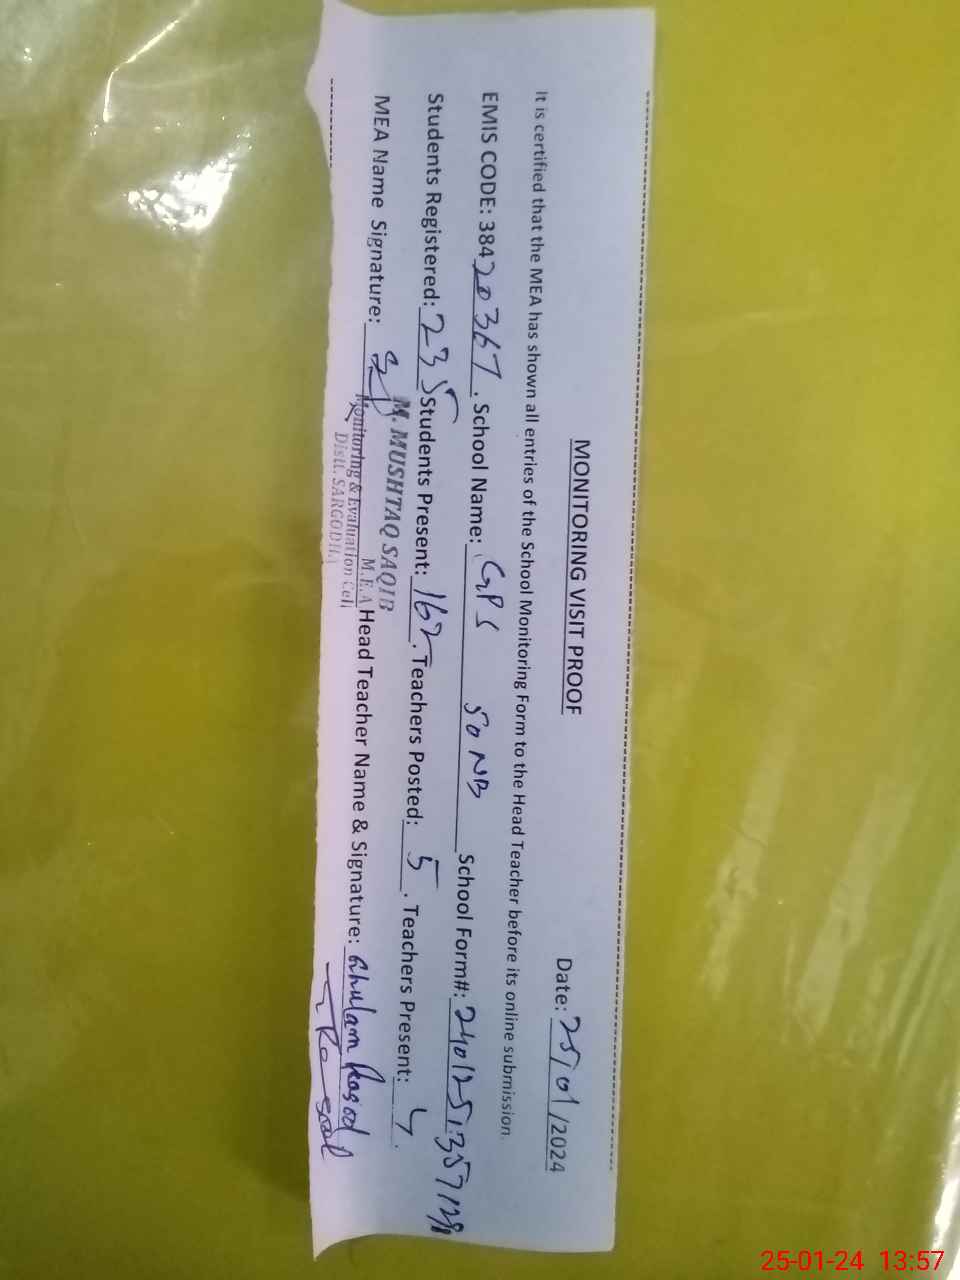 MONITORING VISIT PROOF
Date: 25/01/2024
It is certified that the MEA has shown all entries of the School Monitoring Form to the Head Teacher before its online submission.
EMIS CODE: 38420367. School Name: GPS 50 NB School Form#: 240125135712
Students Registered: 235 Students Present: 162. Teachers Posted: 5. Teachers Present: 4.
MEA Name Signature: Head Teacher Name & Signature: Ghulam Rasool
M. MUSHTAQ SAQIB
M.E.A
Monitoring & Evaluation Cell
Distt. SARGODHA
25-01-24 13:57